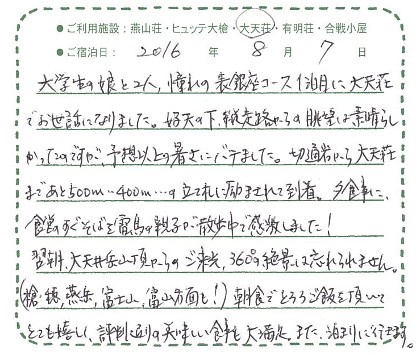 ●ご利用施設:燕山荘・ヒュッテ大槍・大天荘・有明荘・合戦小屋
●ご宿泊日: 2016 年 8 月 7 日
大学生の娘と2人、憧れの表銀座コース1泊目に大天荘
でお世話になりました。好天の下、縦走路からの眺望は素晴らし
かったのですが、予想以上の暑さにバテました。切通岩から大天荘
まであと500m…400m…の立て札に励まされて到着。夕食事に、
食堂のすぐそばを雷鳥の親子が散歩中で感激しました!
翌朝、大天井岳山頂からのご来光、360°の絶景は忘れられません。
(槍・穂、燕岳、富士山、富山方面も!)朝食でとろろご飯を頂いて
とても嬉しく、評判通りの美味しい食事も大満足。また、泊まりに行きます。